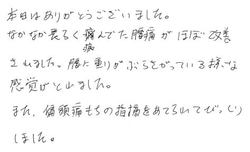 本日はありがとうございました。
なかなか長らく痛んでた腰痛がほぼ改善
されました。腰に重りがぶらさがっている様な
感覚がとれました。
また、偏頭痛もちの指摘をあてられてびっくり
しました。